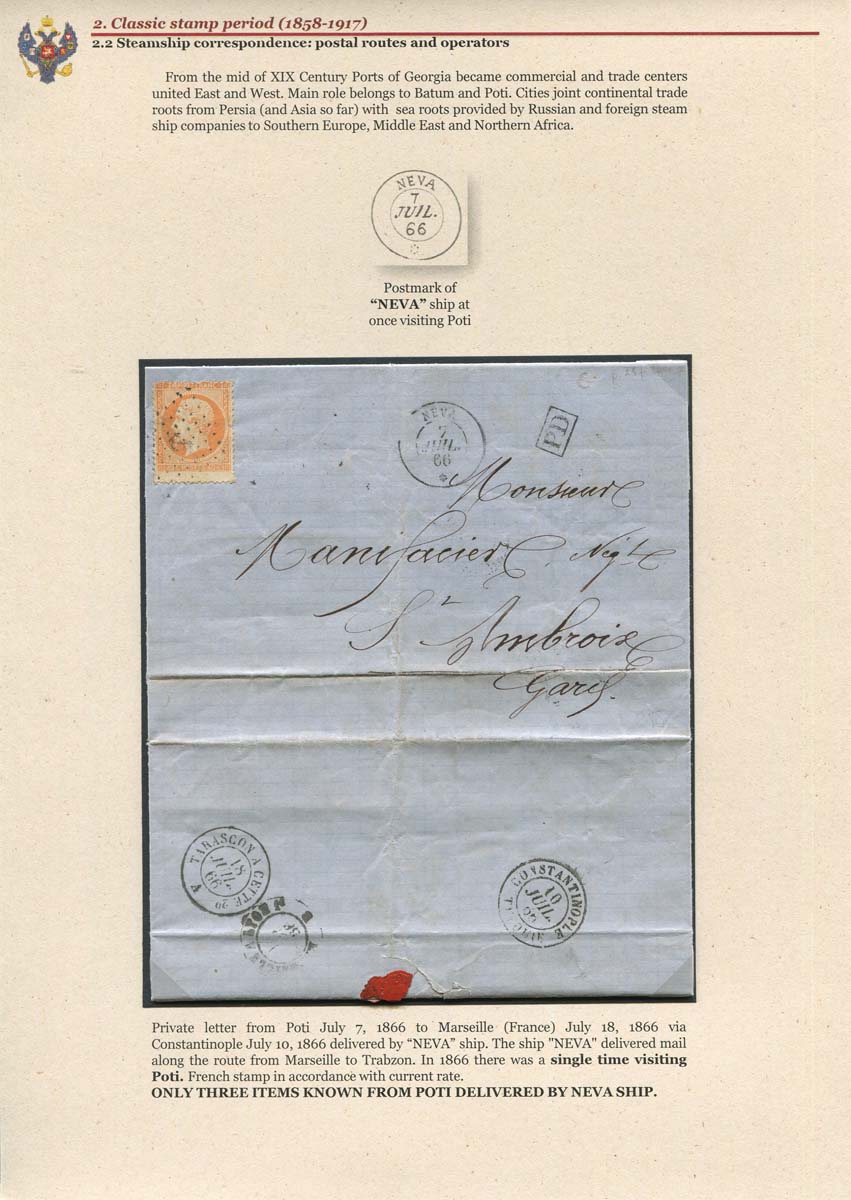 2. Classic stamp period (1858-1917)
2.2 Steamship correspondence: postal routes and operators
From the mid of XIX Century Ports of Georgia became commercial and trade centers
united East and West. Main role belongs to Batum and Poti. Cities joint continental trade
roots from Persia (and Asia so far) with sea roots provided by Russian and foreign steam
ship companies to Southern Europe, Middle East and Northern Africa.
NEVA
7
JUIL.
66
Postmark of
“NEVA” ship at
once visiting Poti
EMPIRE FRANC
NEVA
7
JUIL.
66
PD
Monsieur
Manifacier Negt
St Ambroix
Gard.
TARASCON A CETTE
18
JUIL.
66
LYON
CONSTANTINOPLE
10
JUIL.
66
Private letter from Poti July 7, 1866 to Marseille (France) July 18, 1866 via
Constantinople July 10, 1866 delivered by “NEVA” ship. The ship "NEVA" delivered mail
along the route from Marseille to Trabzon. In 1866 there was a single time visiting
Poti. French stamp in accordance with current rate.
ONLY THREE ITEMS KNOWN FROM POTI DELIVERED BY NEVA SHIP.